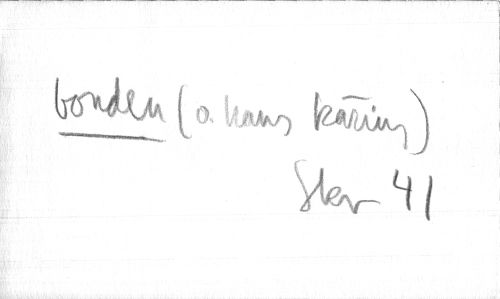 bonden (o. hans kāring)
Skr 41